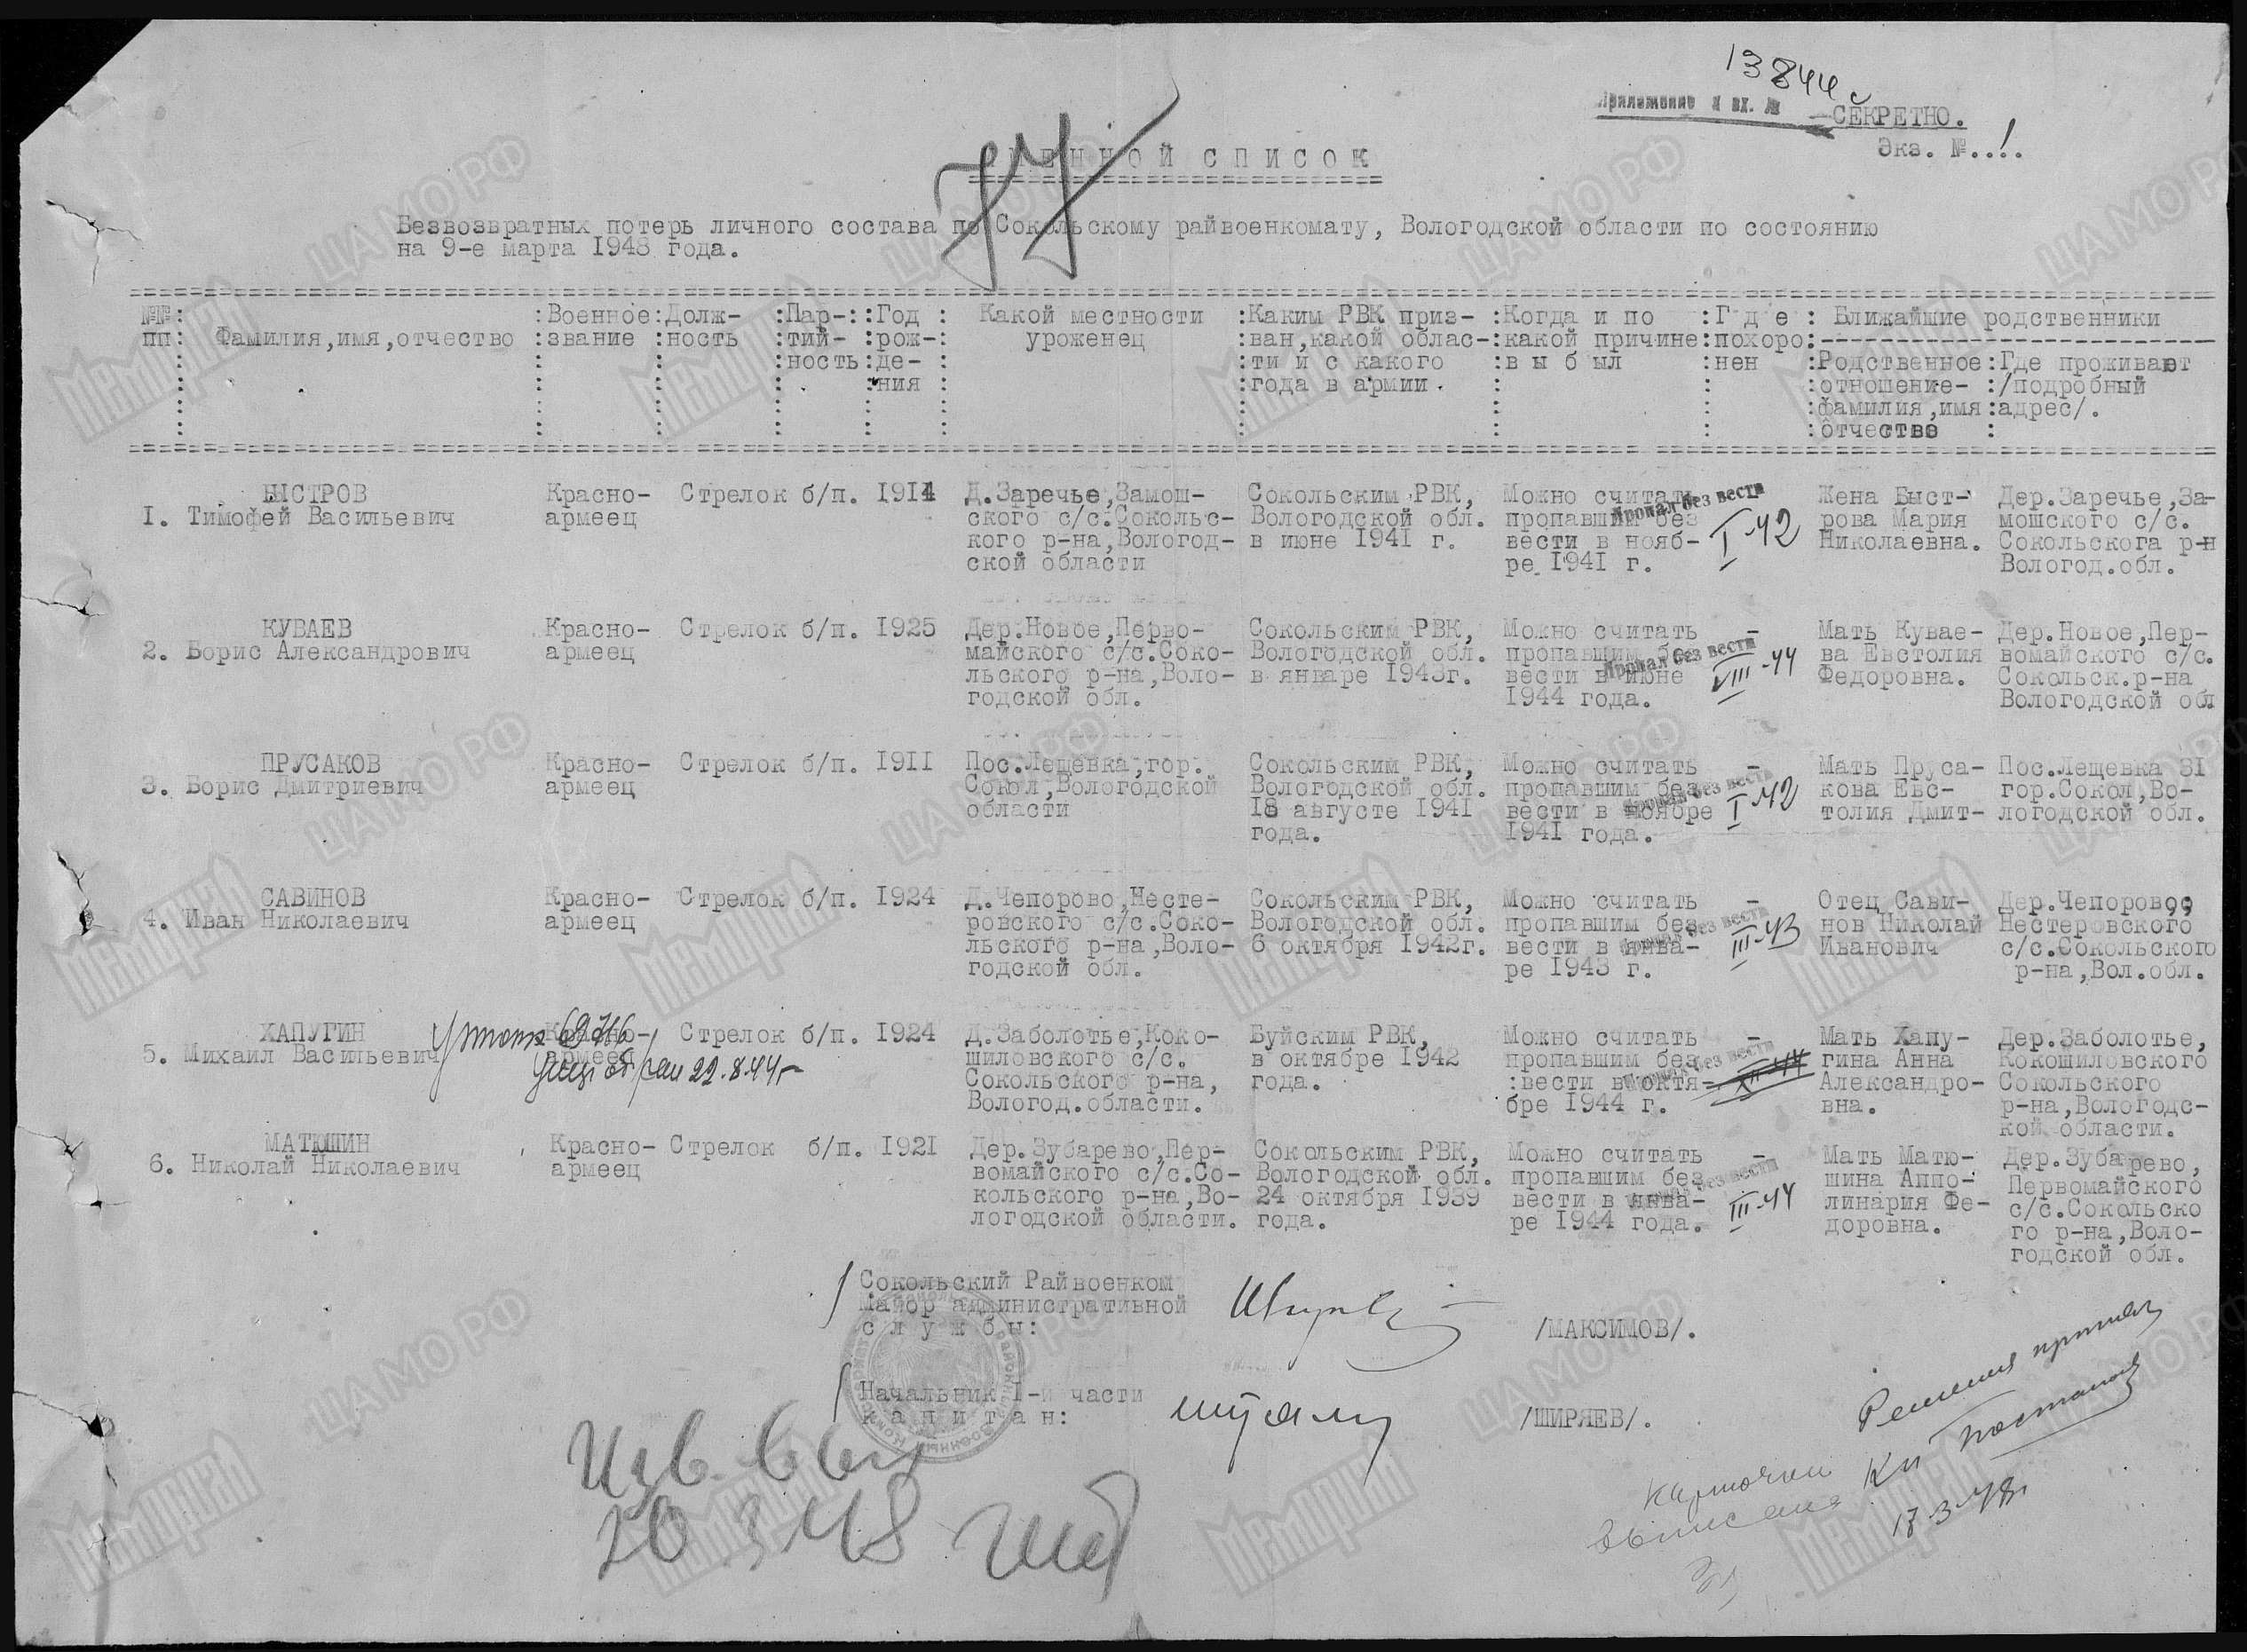 13844с
Приложение к вх. №
СЕКРЕТНО.
Экз. №..1.
77
ИМЕННОЙ СПИСОК
Безвозвратных потерь личного состава по Сокольскому райвоенкомату, Вологодской области по состоянию
на 9-е марта 1948 года.
№№ пп
Фамилия,имя,отчество
Военное звание
Долж-
ность
Пар-
тий-
ность
Год
рож-
де-
ния
Какой местности
уроженец
Каким РВК приз-
ван,какой облас-
ти и с какого
года в армии.
Когда и по
какой причине
выбыл
Где
похоро
нен
Ближайшие родственники
Родственное
отношение-
фамилия,имя
отчество
Где проживает
/подробный
адрес/.
1. БЫСТРОВ
Тимофей Васильевич
Красно-
армеец
Стрелок б/п. 1914
Д.Заречье,Замош-
ского с/с.Сокольс-
кого р-на,Вологод-
ской области
Сокольским РВК,
Вологодской обл.
в июне 1941 г.
Можно считать
пропавшим без
вести в нояб-
ре 1941 г.
Пропал без вести
I-42
Жена Быст-
рова Мария
Николаевна.
Дер.Заречье,За-
мошского с/с.
Сокольскога р-н
Вологод.обл.
2. КУВАЕВ
Борис Александрович
Красно-
армеец
Стрелок б/п. 1925
Дер.Новое,Перво-
майского с/с.Соко-
льского р-на,Воло-
годской обл.
Сокольским РВК,
Вологодской обл.
в январе 1943г.
Можно считать -
пропавшим без
вести в июне
1944 года.
Пропал без вести
VIII-44
Мать Кувае-
ва Евстолия
Федоровна.
Дер.Новое,Пер-
вомайского с/с.
Сокольск.р-на
Вологодской обл
3. ПРУСАКОВ
Борис Дмитриевич
Красно-
армеец
Стрелок б/п. 1911
Пос.Лещевка,гор.
Сокол,Вологодской
области
Сокольским РВК,
Вологодской обл.
18 августе 1941
года.
Можно считать -
пропавшим без
вести в ноябре
1941 года.
Пропал без вести
I-42
Мать Пруса-
кова Евс-
толия Дмит-
Пос.Лещевка 81
гор.Сокол,Во-
логодской обл.
4. САВИНОВ
Иван Николаевич
Красно-
армеец
Стрелок б/п. 1924
Д.Чепорово,Несте-
ровского с/с.Соко-
льского р-на,Воло-
годской обл.
Сокольским РВК,
Вологодской обл.
6 октября 1942г.
Можно считать -
пропавшим без
вести в янва-
ре 1943 г.
Пропал без вести
III-43
Отец Сави-
нов Николай
Иванович
Дер.Чепорово,
Нестеровского
с/с.Сокольского
р-на,Вол.обл.
5. ХАПУГИН
Михаил Васильевич
Красно-
армеец
22.8.44г
Стрелок б/п. 1924
Д.Заболотье,Коко-
шиловского с/с.
Сокольского р-на,
Вологод.области.
Буйским РВК,
в октябре 1942
года.
Можно считать -
пропавшим без
:вести в октя-
бре 1944 г.
Пропал без вести
XII-44
Мать Хапу-
гина Анна
Александро-
вна.
Дер.Заболотье,
Кокошиловского
Сокольского
р-на,Вологодс-
кой области.
6. МАТЮШИН
Николай Николаевич
Красно-
армеец
Стрелок б/п. 1921
Дер.Зубарево,Пер-
вомайского с/с.Со-
кольского р-на,Во-
логодской области.
Сокольским РВК,
Вологодской обл.
24 октября 1939
года.
Можно считать -
пропавшим без
вести в янва-
ре 1944 года.
Пропал без вести
III-44
Мать Матю-
шина Аппо-
линария Фе-
доровна.
Дер.Зубарево,
Первомайского
с/с.Сокольско
го р-на,Воло-
годской обл.
Сокольский Райвоенком
Майор административной
службы:
/МАКСИМОВ/.
Начальник I-й части
капитан:
/ШИРЯЕВ/.
Изв. выс
20.3.48
Карточки
выписаны
17-3-48г
Мемориал
ЦАМО РФ